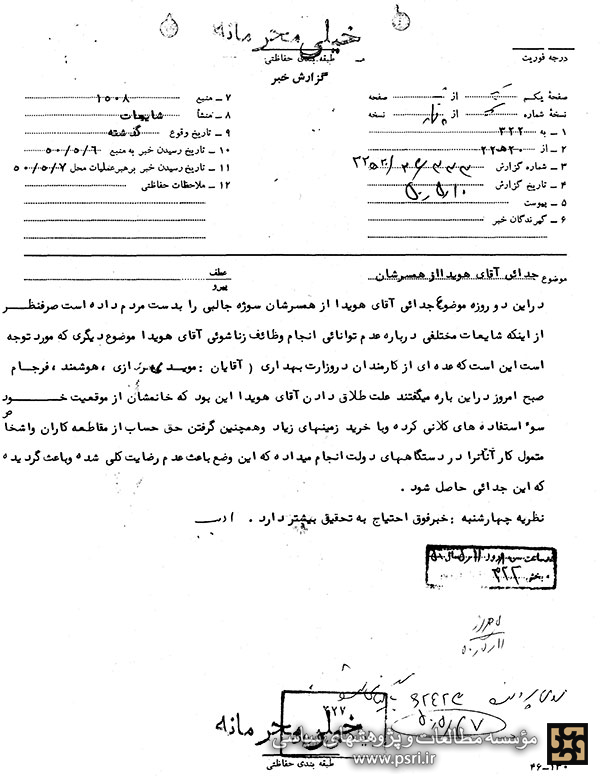 خیلی محرمانه
طبقه بندی حفاظتی
درجه فوریت
گزارش خبر
صفحه یکم از صفحه
نسخه شماره از نسخه
۱ ـ به ۳۲۲
۲ ـ از ۲۲ ه‍ ۲۰
۳ ـ شماره گزارش
۴ ـ تاریخ گزارش
۵ ـ پیوست
۶ ـ گیرندگان خبر
۷ ـ منبع ۱۵۰۸
۸ ـ منشأ شایعات
۹ ـ تاریخ وقوع گذشته
۱۰ ـ تاریخ رسیدن خبر به منبع ۵۰/۵/۶
۱۱ ـ تاریخ رسیدن خبر برهبر عملیات محل ۵۰/۵/۷
۱۲ ـ ملاحظات حفاظتی
موضوع جدائی آقای هویدا از همسرشان
عطف
پیرو
در این دو روزه موضوع جدائی آقای هویدا از همسرشان سوژه جالبی را بدست مردم داده است صرفنظر
از اینکه شایعات مختلفی درباره عدم توانائی انجام وظائف زناشوئی آقای هویدا موضوع دیگری که مورد توجه
است این است که عده ای از کارمندان در وزارت بهداری ( آقایان : موید ، هوشمند ، فرجام
صبح امروز در این باره میگفتند علت طلاق دادن آقای هویدا این بود که خانمشان از موقعیت خود
سوء استفاده های کلانی کرده و با خرید زمینهای زیاد و همچنین گرفتن حق حساب از مقاطعه کاران و اشخاص
متمول کار آنانرا در دستگاههای دولت انجام میداده که این وضع باعث عدم رضایت کلی شده و باعث گردیده
که این جدائی حاصل شود .
نظریه چهارشنبه : خبر فوق احتیاج به تحقیق بیشتر دارد .
بخش ۳۲۲
۶۲۴۲۳
۳۲۷
خیلی محرمانه
طبقه بندی حفاظتی
مؤسسه مطالعات و پژوهشهای سیاسی
www.psri.ir
۴۶ـ۱۳۰